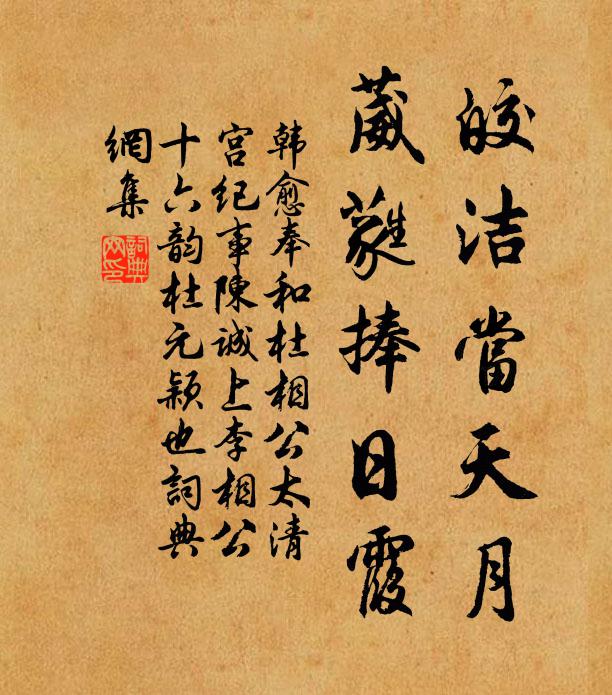 皎洁當天月
葳蕤捧日霞
韩愈奉和杜相公太清
宫纪事陳诚上李相公
十六韵杜元颖也詞典
網集
詞典網印